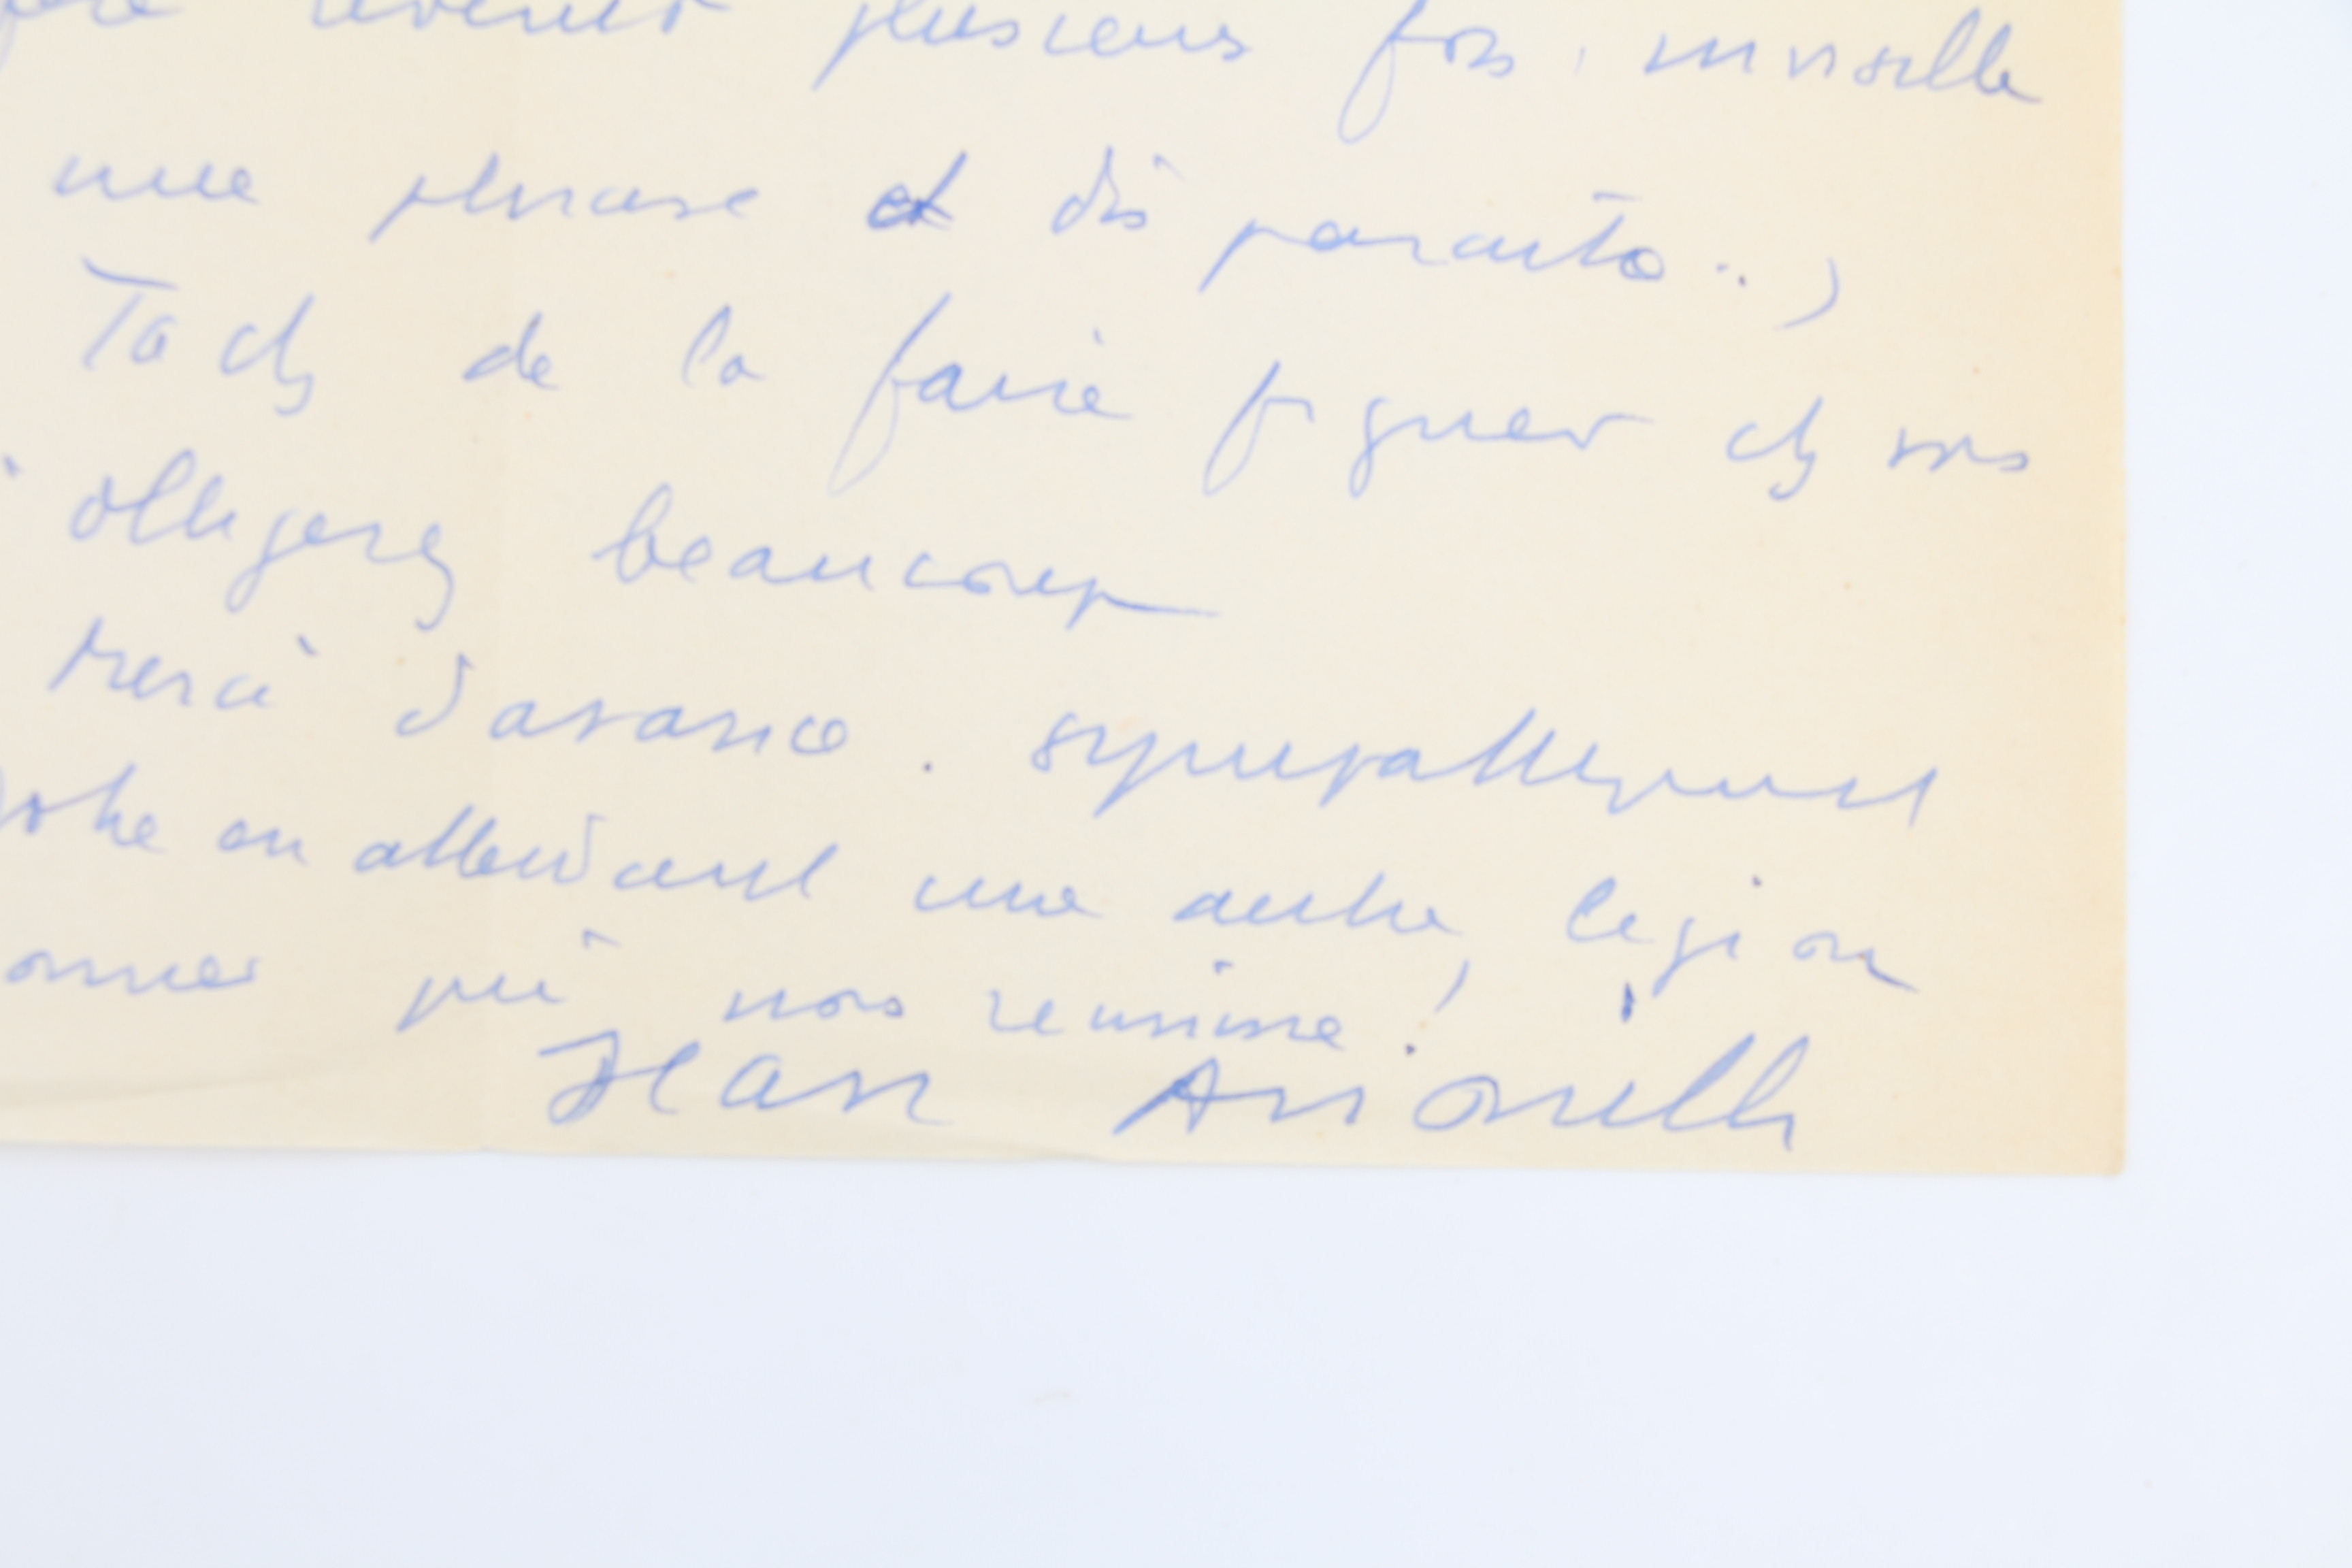 revenir plusieurs fois,
une phrase et disparaito..)
Tachez de la faire figurer chez vos
obligerez beaucoup
Merci d'avance. sympathiquement
votre en attendant une autre legion
onneur qui nous reunisse!
Jean Anouilh